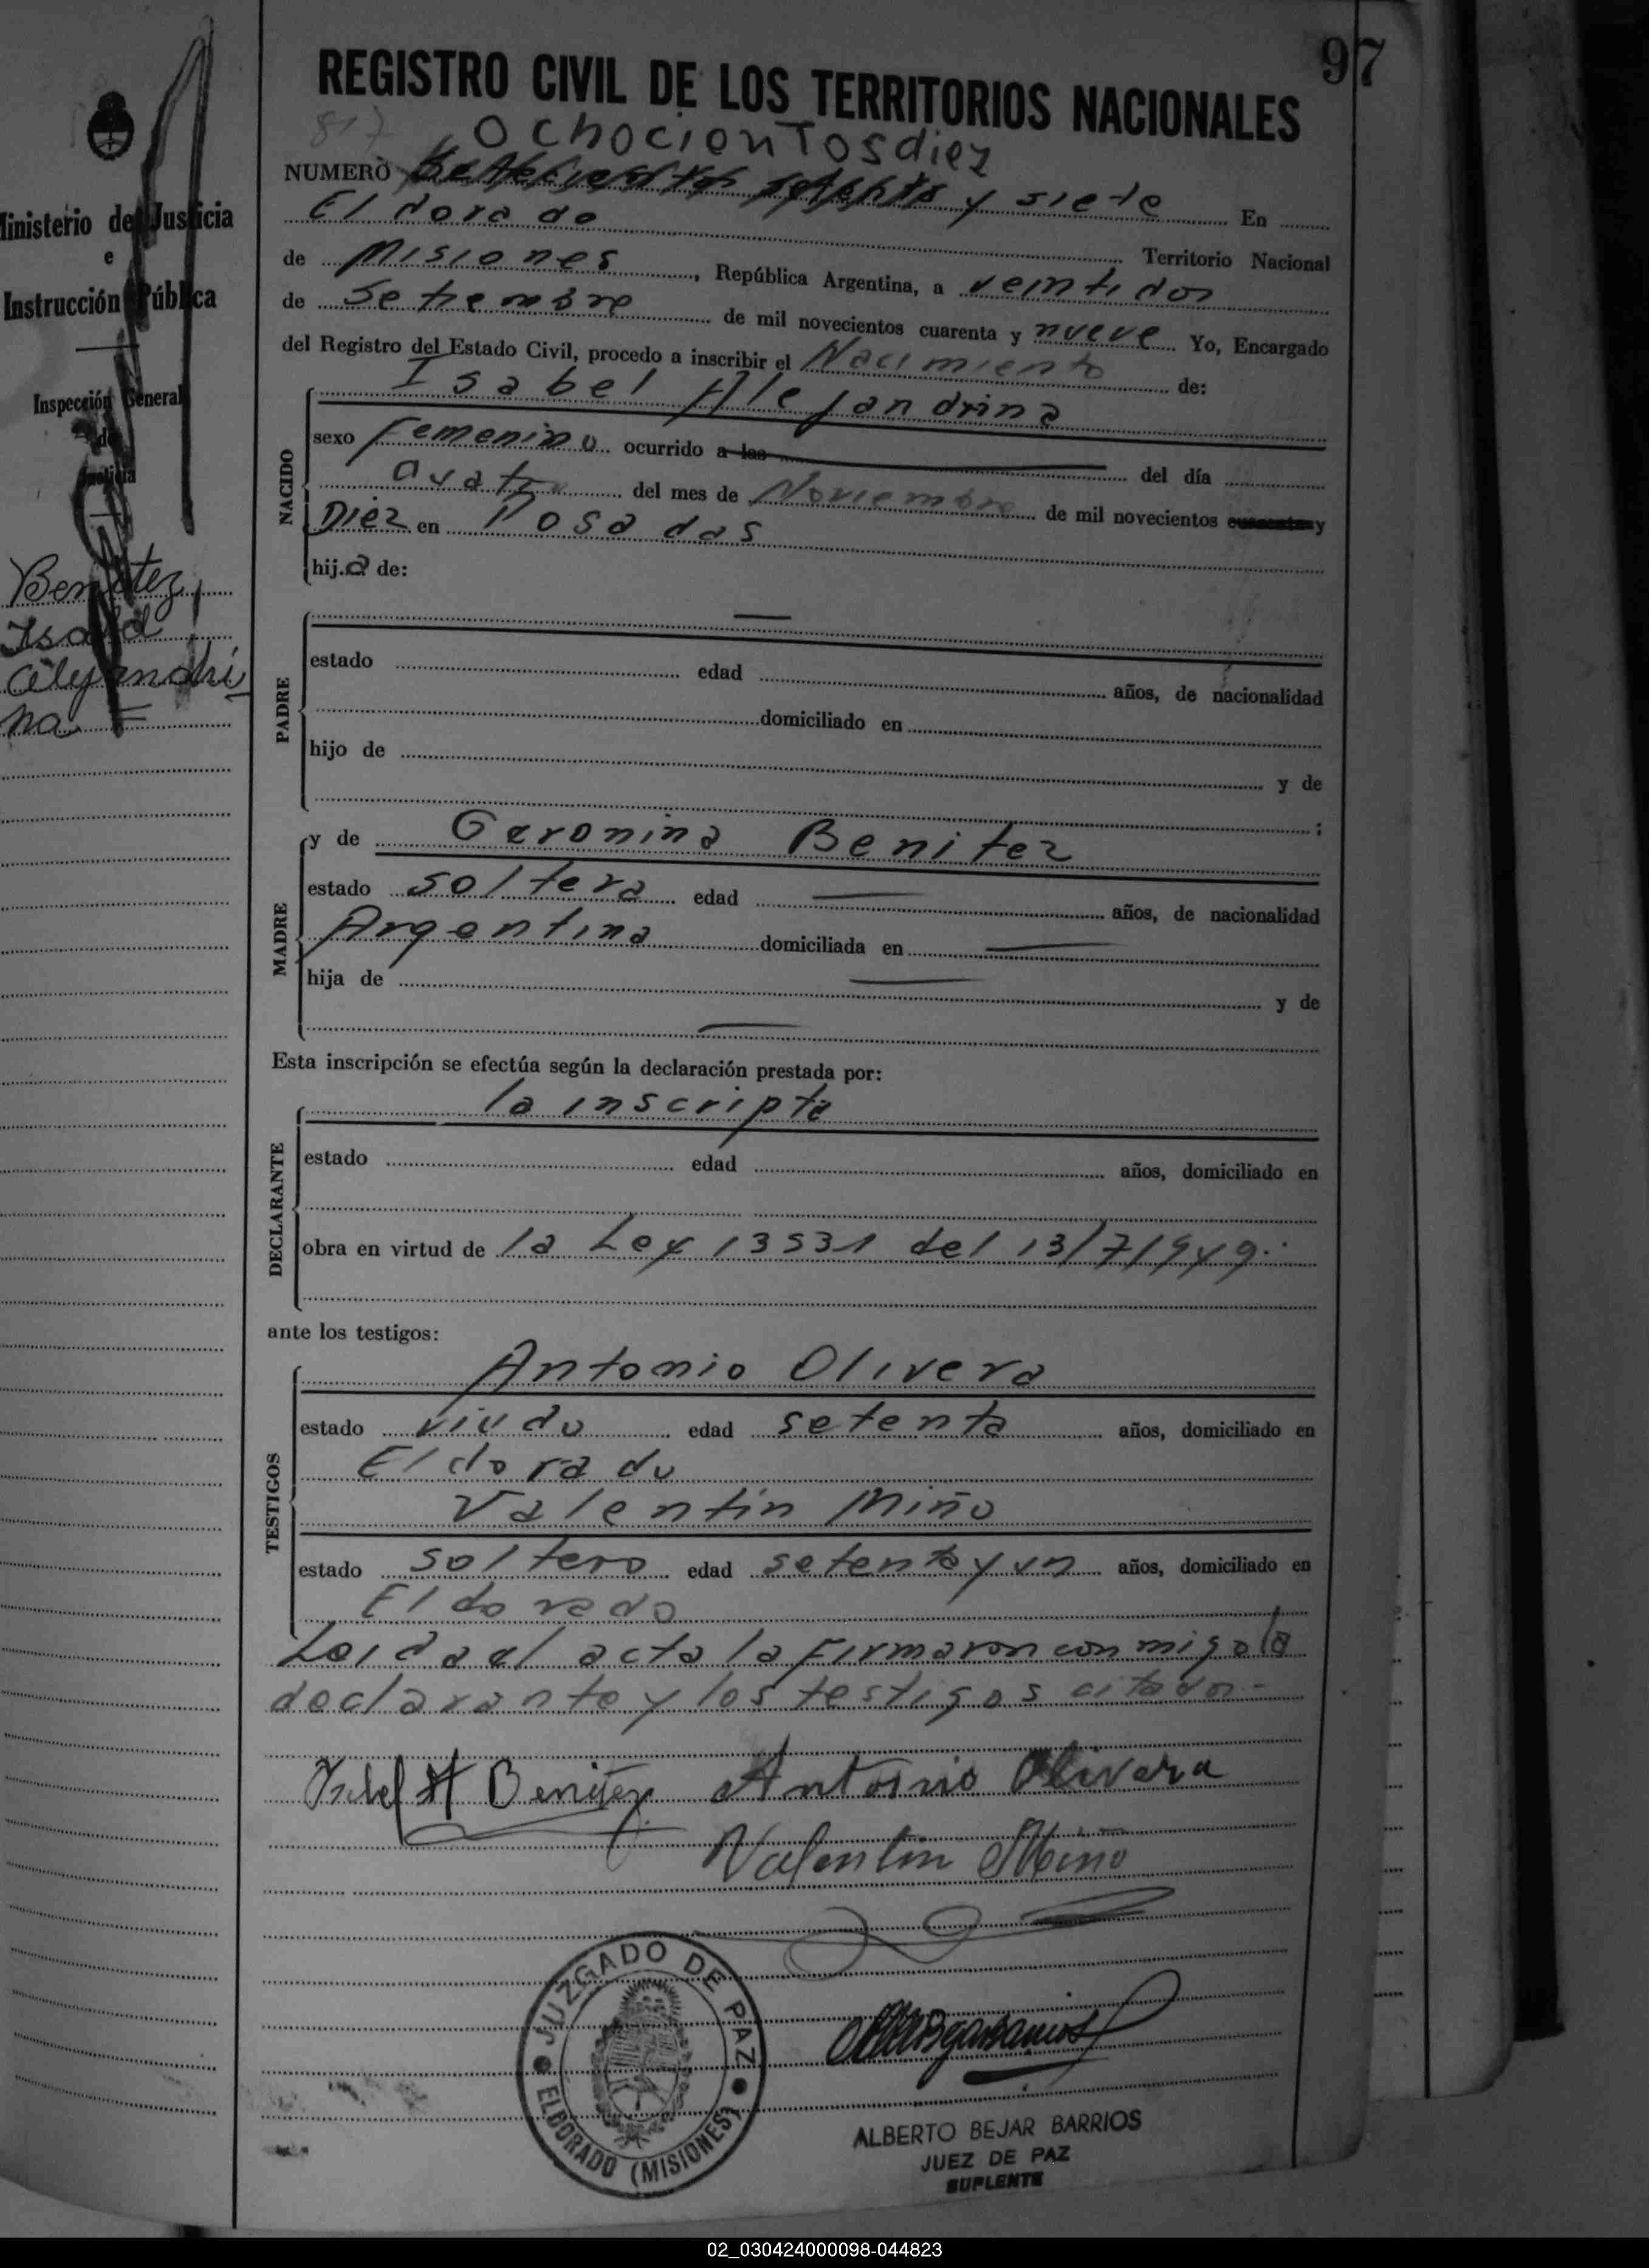 97
REGISTRO CIVIL DE LOS TERRITORIOS NACIONALES
817
Ochocientos diez
NUMERO y siete En
Eldorado Territorio Nacional
de Misiones, República Argentina, a veintidos
de Setiembre de mil novecientos cuarenta y nueve Yo, Encargado
del Registro del Estado Civil, procedo a inscribir el Nacimiento de:
NACIDO
Isabel Alejandrina
sexo Femenino ocurrido a las del día
cuatro del mes de Noviembre de mil novecientos cuarenta y
Diez en Posadas
hij.a de:
PADRE
estado edad años, de nacionalidad
domiciliado en
hijo de y de
;
MADRE
y de Geronina Benitez
estado soltera edad años, de nacionalidad
Argentina domiciliada en
hija de y de
Esta inscripción se efectúa según la declaración prestada por:
DECLARANTE
la inscripta
estado edad años, domiciliado en
obra en virtud de la Ley 13531 del 13/7/949.
ante los testigos:
TESTIGOS
Antonio Olivera
estado viudo edad setenta años, domiciliado en
Eldorado
Valentín Miño
estado soltero edad setenta y un años, domiciliado en
Eldorado
Leida el acta la firmaron conmigo la
declarante y los testigos citados.-
Isabel A Benitez Antonio Olivera
Valentin Miño
JUZGADO DE PAZ
ELDORADO (MISIONES)
ALBERTO BEJAR BARRIOS
JUEZ DE PAZ
SUPLENTE
Ministerio de Justicia
e
Instrucción Pública
Inspección General
de
Justicia
Benitez,
Isabel
Alejandri
na
02_030424000098-044823